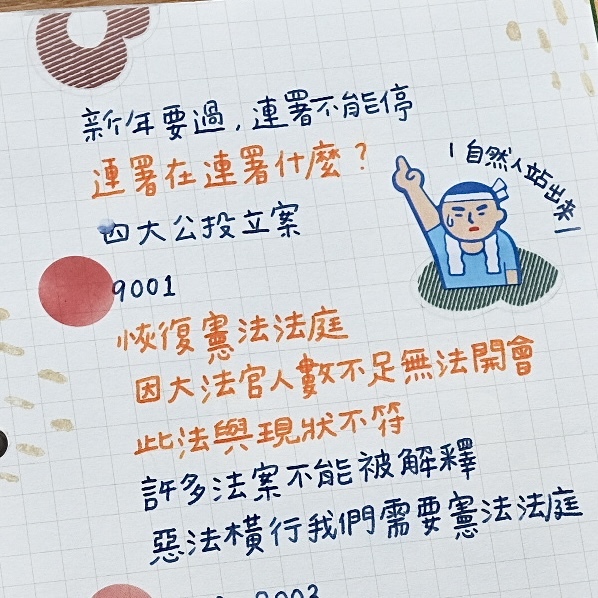 新年要過,連署不能停
連署在連署什麼?
自然人站出來
四大公投立案
9001
恢復憲法法庭
因大法官人數不足無法開會
此法與現狀不符
許多法案不能被解釋
惡法橫行我們需要憲法法庭
9003